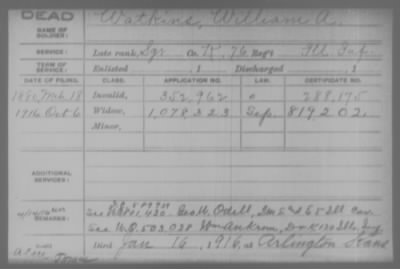 DEAD
NAME OF SOLDIER: Watkins, William A.
SERVICE: Late rank, Sgt Co. K, 76 Reg't Ill Inf.
TERM OF SERVICE: Enlisted , 1 Discharged , 1
DATE OF FILING. CLASS. APPLICATION NO. LAW. CERTIFICATE NO.
1880, Feb. 18 Invalid, 352,962 288,175
1916 Oct 6 Widow, 1,078,323 Sep. 819202.
Minor,
ADDITIONAL SERVICES:
REMARKS: Geo W. Odell,
See W.O. 503,028 Wm Ankrom,
Died Jan 16, 1916, at Arlington Kans